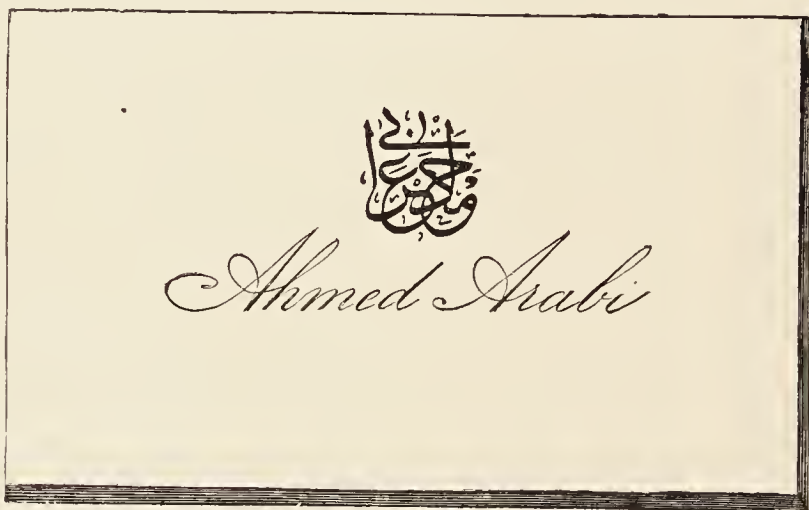 احمد عرابى
Ahmed Arabi